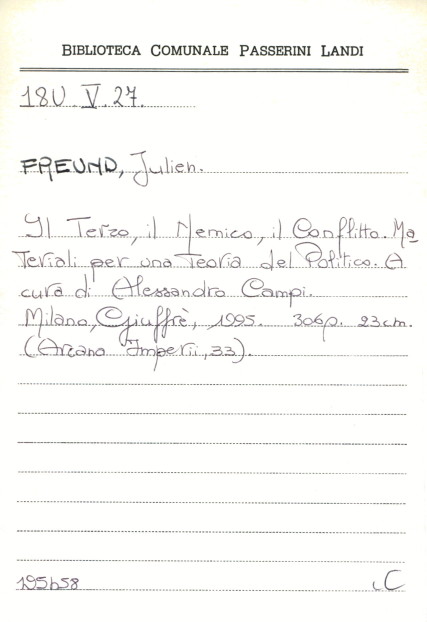 BIBLIOTECA COMUNALE PASSERINI LANDI
18U.V.27.
FREUND, Julien.
Il Terzo, il Nemico, il Conflitto. Ma
teriali per una Teoria del Politico. A
cura di Alessandro Campi.
Milano, Giuffrè, 1995. 306p. 23cm.
(Arcana Imperii, 33).
195458
C